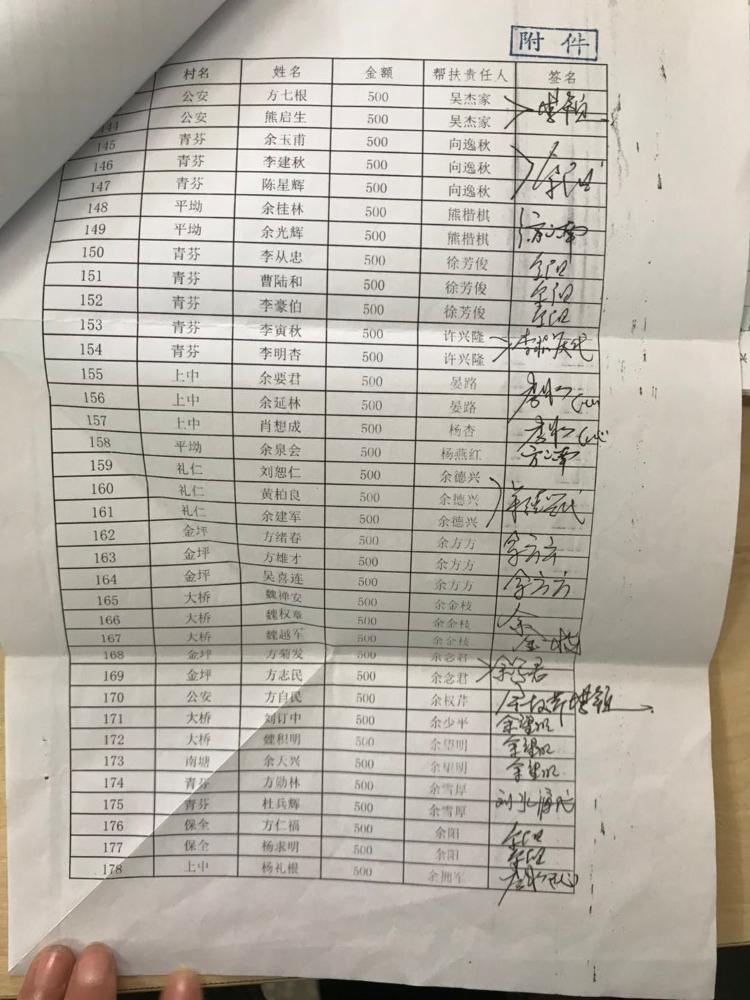 附件
村名 姓名 金额 帮扶责任人 签名
公安 方七根 500 吴杰家
144 公安 熊启生 500 吴杰家
145 青芬 余玉甫 500 向逸秋
146 青芬 李建秋 500 向逸秋
147 青芬 陈星辉 500 向逸秋
148 平坳 余桂林 500 熊楷棋
149 平坳 余光辉 500 熊楷棋
150 青芬 李从忠 500 徐芳俊 余阳
151 青芬 曹陆和 500 徐芳俊 余阳
152 青芬 李豪伯 500 徐芳俊 余阳
153 青芬 李寅秋 500 许兴隆
154 青芬 李明杏 500 许兴隆
155 上中 余要君 500 晏路
156 上中 余延林 500 晏路
157 上中 肖想成 500 杨杏
158 平坳 余泉会 500 杨燕红
159 礼仁 刘恕仁 500 余德兴
160 礼仁 黄柏良 500 余德兴
161 礼仁 余建军 500 余德兴
162 金坪 方绪春 500 余方方 余方方
163 金坪 方雄才 500 余方方
164 金坪 吴喜连 500 余方方 余方方
165 大桥 魏禅安 500 余金枝
166 大桥 魏权章 500 余金枝 余
167 大桥 魏越军 500 余金枝 金枝
168 金坪 方菊发 500 余念君 余念君
169 金坪 方志民 500 余念君
170 公安 方自民 500 余权芹
171 大桥 刘订中 500 余少平 余望明
172 大桥 魏积明 500 余望明 余望明
173 南塘 余大兴 500 余望明 余望明
174 青芬 方勋林 500 余雪厚
175 青芬 杜兵辉 500 余雪厚
176 保全 方仁福 500 余阳 余阳
177 保全 杨求明 500 余阳 余阳
178 上中 杨礼根 500 余拥军